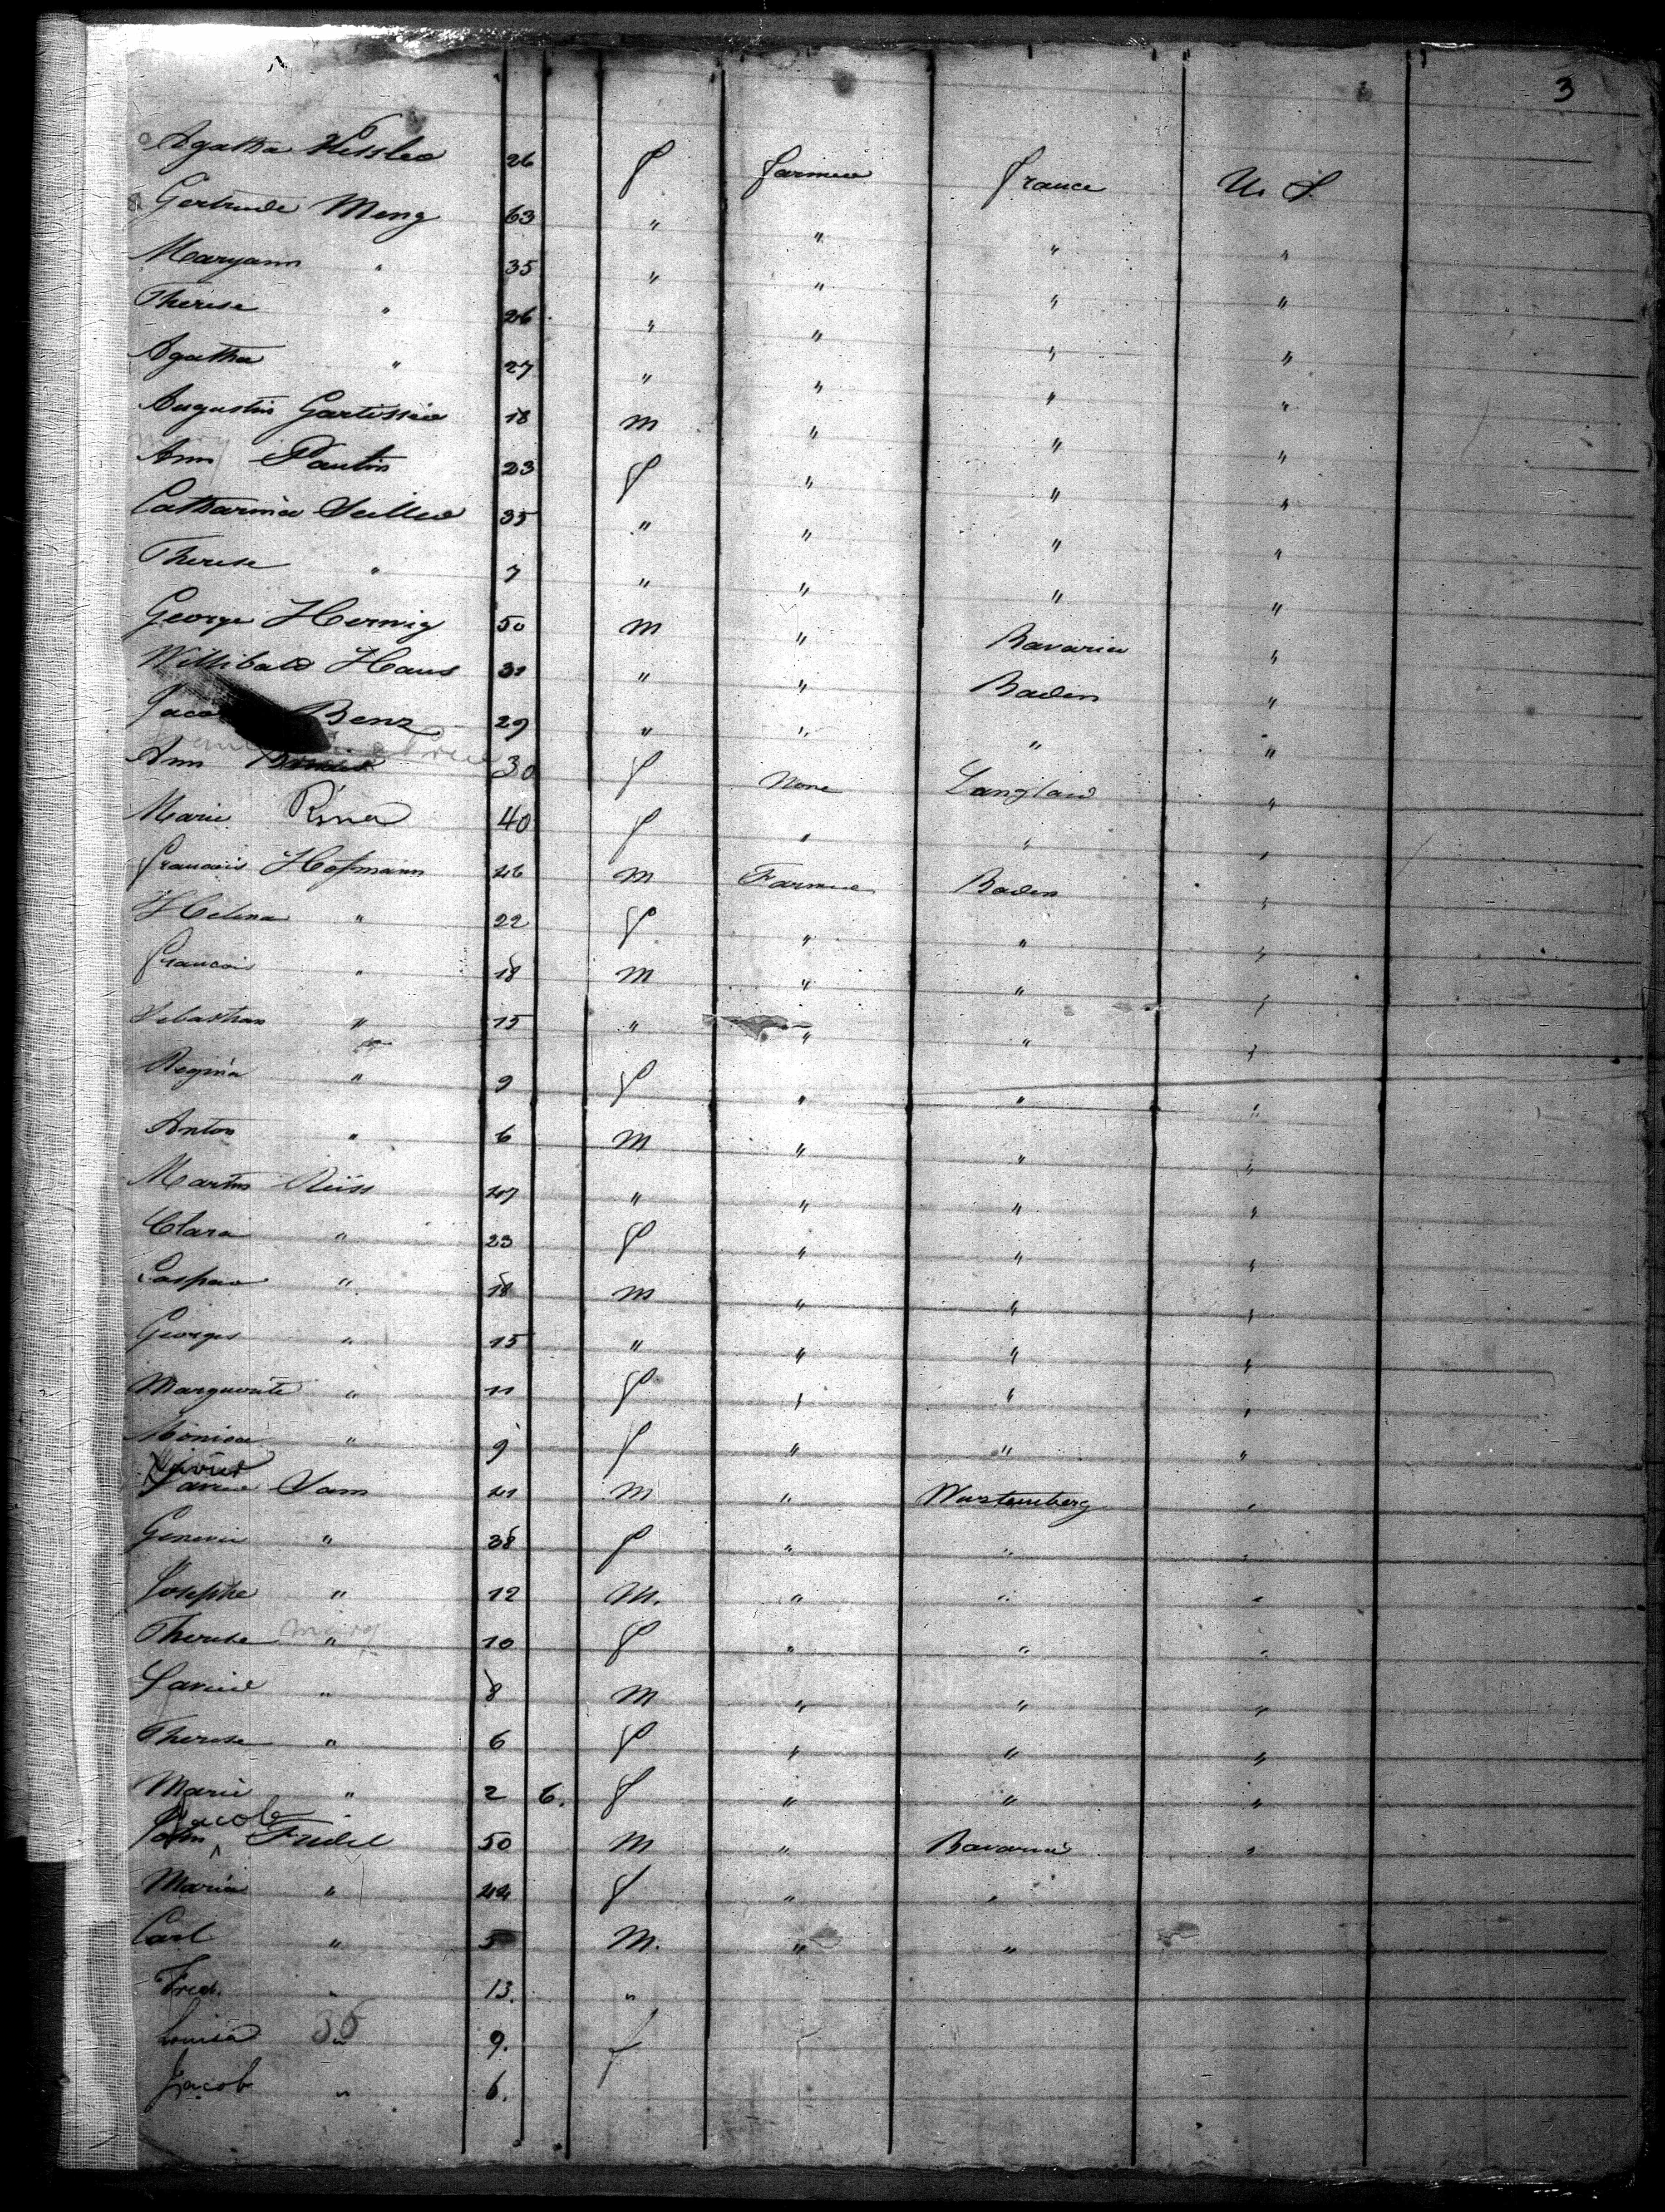 3
Agatha Kessler 26 f farmer france U. S.
Gertrude Meng 63 " " " "
Maryann " 35 " " " "
Therese " 26 " " " "
Agatha " 27 " " " "
Augustin 18 m " " "
mary
Ann Pautin 23 f " " "
Catharina 35 " " " "
Therese " 7 " " " "
George Herwig 50 m " Bavaria "
Willibald Haus 31 " " Baden "
Jaco Benz 29 " " " "
Ann 30 f None "
Marie 40 f " " "
francois Hofmann 46 m Farmer Baden "
Helena " 22 f " " "
francois " 18 m " " "
Sebastian " 15 " " " "
Regina " 9 f " " "
Anton " 6 m " " "
Martin Reiss 47 " " " "
Clara " 23 f " " "
Caspar " 18 m " " "
Georges " 15 " " " "
Marguerite " 11 f " " "
Monica " 9 f " " "
Xavier
Sam 41 m " Wurtemberg "
Genevie " 38 f " " "
Josephe " 12 M. " " "
mary
Therese " 10 f " " "
Xavier " 8 m " " "
Therese " 6 f " " "
Marie " 2 6. f " " "
Jacob
John ^ Fridel 50 m " Bavaria "
Maria " 44 f " "
Carl " 5 M. " "
Fred. " 13. "
Louisa " 36 9. f
Jacob " 6.